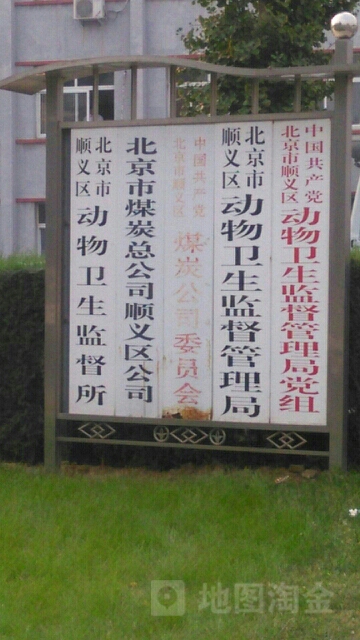 中国共产党
北京市顺义区
动物卫生监督管理局党组
北京市
顺义区
动物卫生监督管理局
中国共产党
北京市顺义区
煤炭公司委员会
北京市煤炭总公司顺义区公司
北京市
顺义区
动物卫生监督所
地图淘金